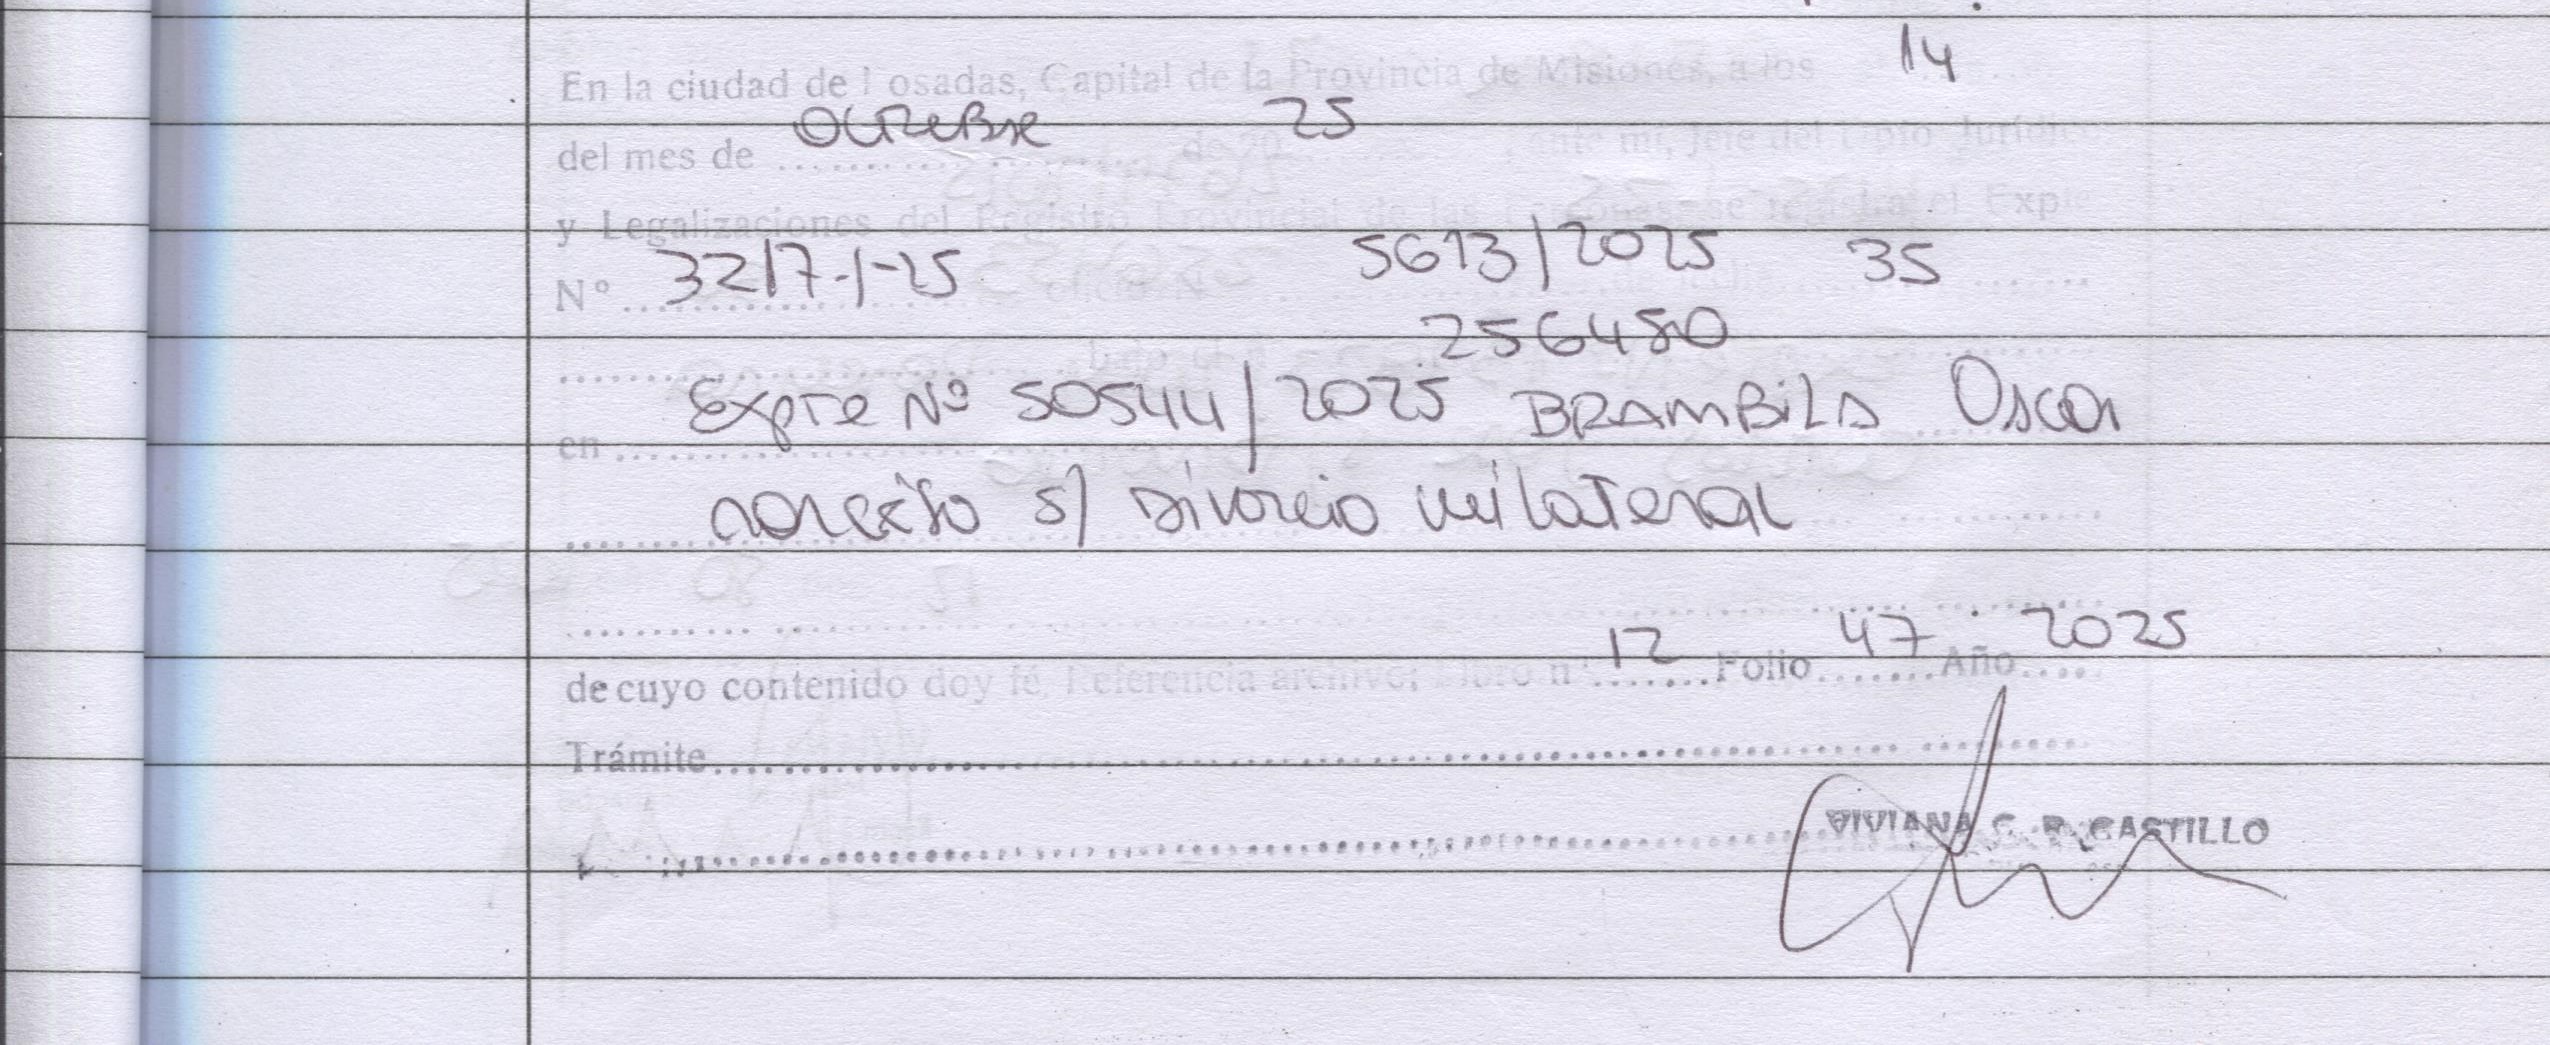 En la ciudad de Posadas, Capital de la Provincia de Misiones, a los 14
del mes de OCTUBRE de 20 25 ante mi, Jefe del Dpto Jurídico
y Legalizaciones del Registro Provincial de las Personas se registra el Expte
Nº 3217-1-25 oficio Nº 5613/2025 35
bajo el 256480
en Expte Nº 50544/2025 BRAMBILA Oscar
s/ Divorcio unilateral
de cuyo contenido doy fé. Referencia archivo: Libro nº 12 Folio 47 Año 2025
Trámite
VIVIANA C. R. CASTILLO